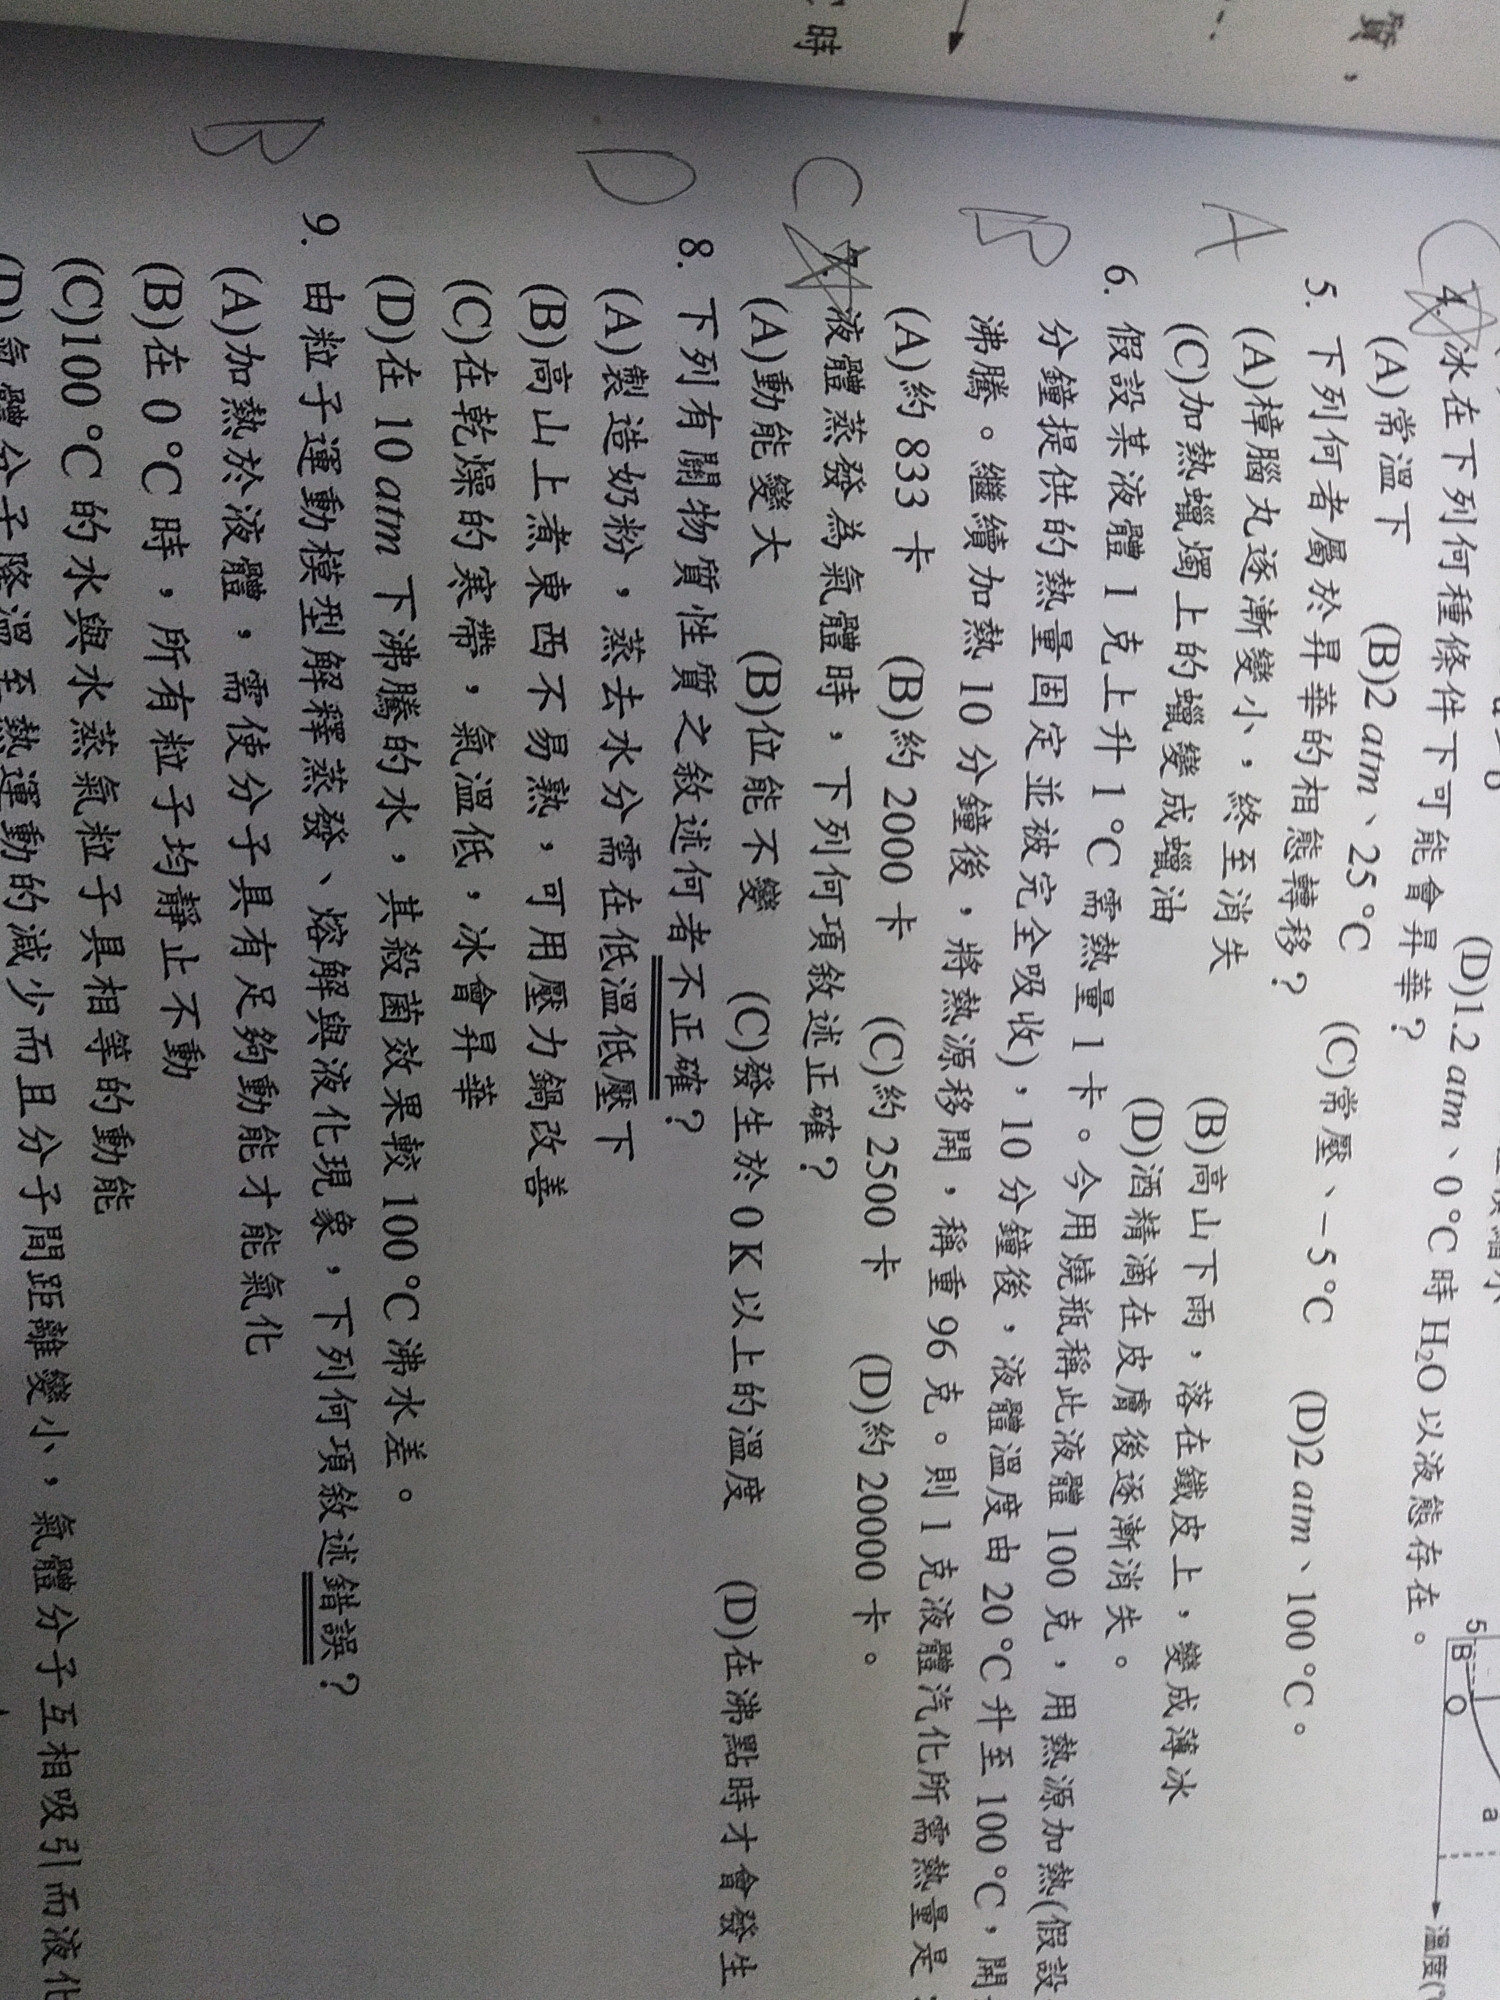 質，
時
(D)1.2 atm、0 °C 時 H₂O 以液態存在。
5
B
O
a
溫度(°
C
4. 冰在下列何種條件下可能會昇華？
(A)常溫下 (B)2 atm、25 °C (C)常壓、－5 °C (D)2 atm、100 °C。
A
5. 下列何者屬於昇華的相態轉移？
(A)樟腦丸逐漸變小，終至消失 (B)高山下雨，落在鐵皮上，變成薄冰
(C)加熱蠟燭上的蠟變成蠟油 (D)酒精滴在皮膚後逐漸消失。
B
6. 假設某液體 1 克上升 1 °C 需熱量 1 卡。今用燒瓶稱此液體 100 克，用熱源加熱(假設
分鐘提供的熱量固定並被完全吸收)，10 分鐘後，液體溫度由 20 °C 升至 100 °C，開
沸騰。繼續加熱 10 分鐘後，將熱源移開，稱重 96 克。則 1 克液體汽化所需熱量是
(A)約 833 卡 (B)約 2000 卡 (C)約 2500 卡 (D)約 20000 卡。
C
7. 液體蒸發為氣體時，下列何項敘述正確？
(A)動能變大 (B)位能不變 (C)發生於 0 K 以上的溫度 (D)在沸點時才會發生
D
8. 下列有關物質性質之敘述何者不正確？
(A)製造奶粉，蒸去水分需在低溫低壓下
(B)高山上煮東西不易熟，可用壓力鍋改善
(C)在乾燥的寒帶，氣溫低，冰會昇華
(D)在 10 atm 下沸騰的水，其殺菌效果較 100 °C 沸水差。
B
9. 由粒子運動模型解釋蒸發、熔解與液化現象，下列何項敘述錯誤？
(A)加熱於液體，需使分子具有足夠動能才能氣化
(B)在 0 °C 時，所有粒子均靜止不動
(C)100 °C 的水與水蒸氣粒子具相等的動能
(D)氣體分子降溫至熱運動的減少而且分子間距離變小，氣體分子互相吸引而液化